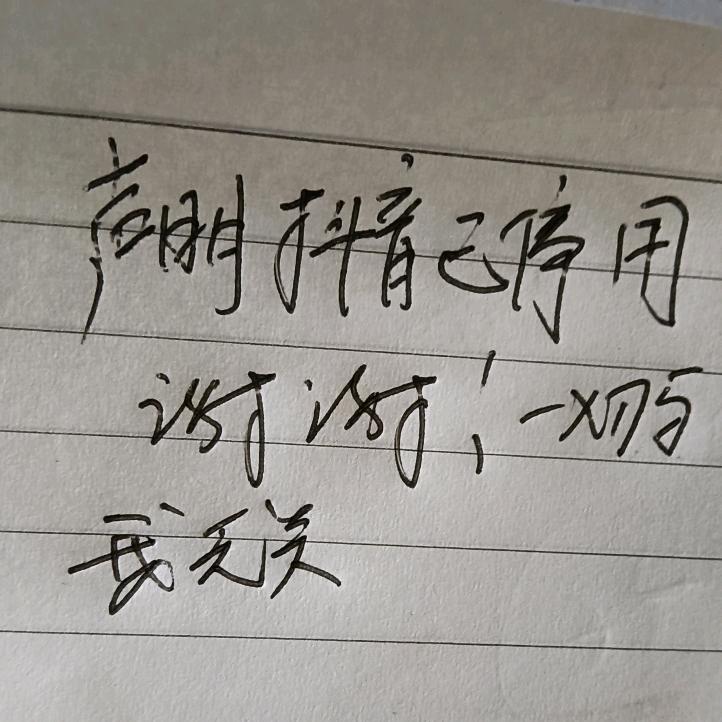 声明抖音已停用
谢谢！一切与
我无关